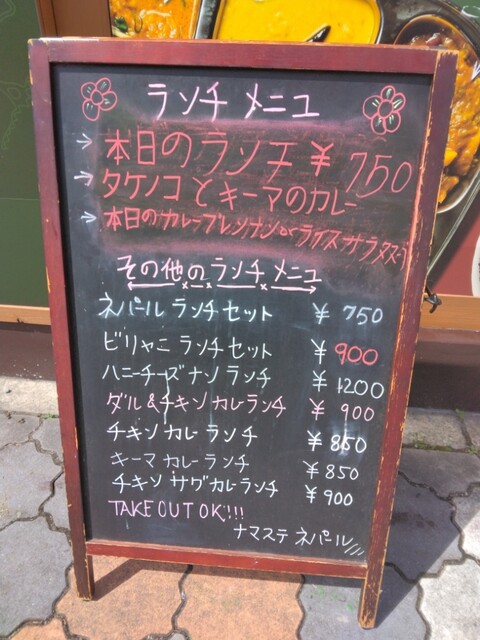 ランチ メニュ
→ 本日のランチ ¥750
→ タケノコとキーマのカレー
→ 本日のカレープレンナンorライスサラダスープ
その他のランチメニュ
ネパール ランチセット ¥750
ビリヤニ ランチセット ¥900
ハニーチーズナン ランチ ¥1200
ダル&チキン カレーランチ ¥900
チキン カレー ランチ ¥850
キーマ カレー ランチ ¥850
チキン サグカレーランチ ¥900
TAKE OUT OK!!!
ナマステ ネパール